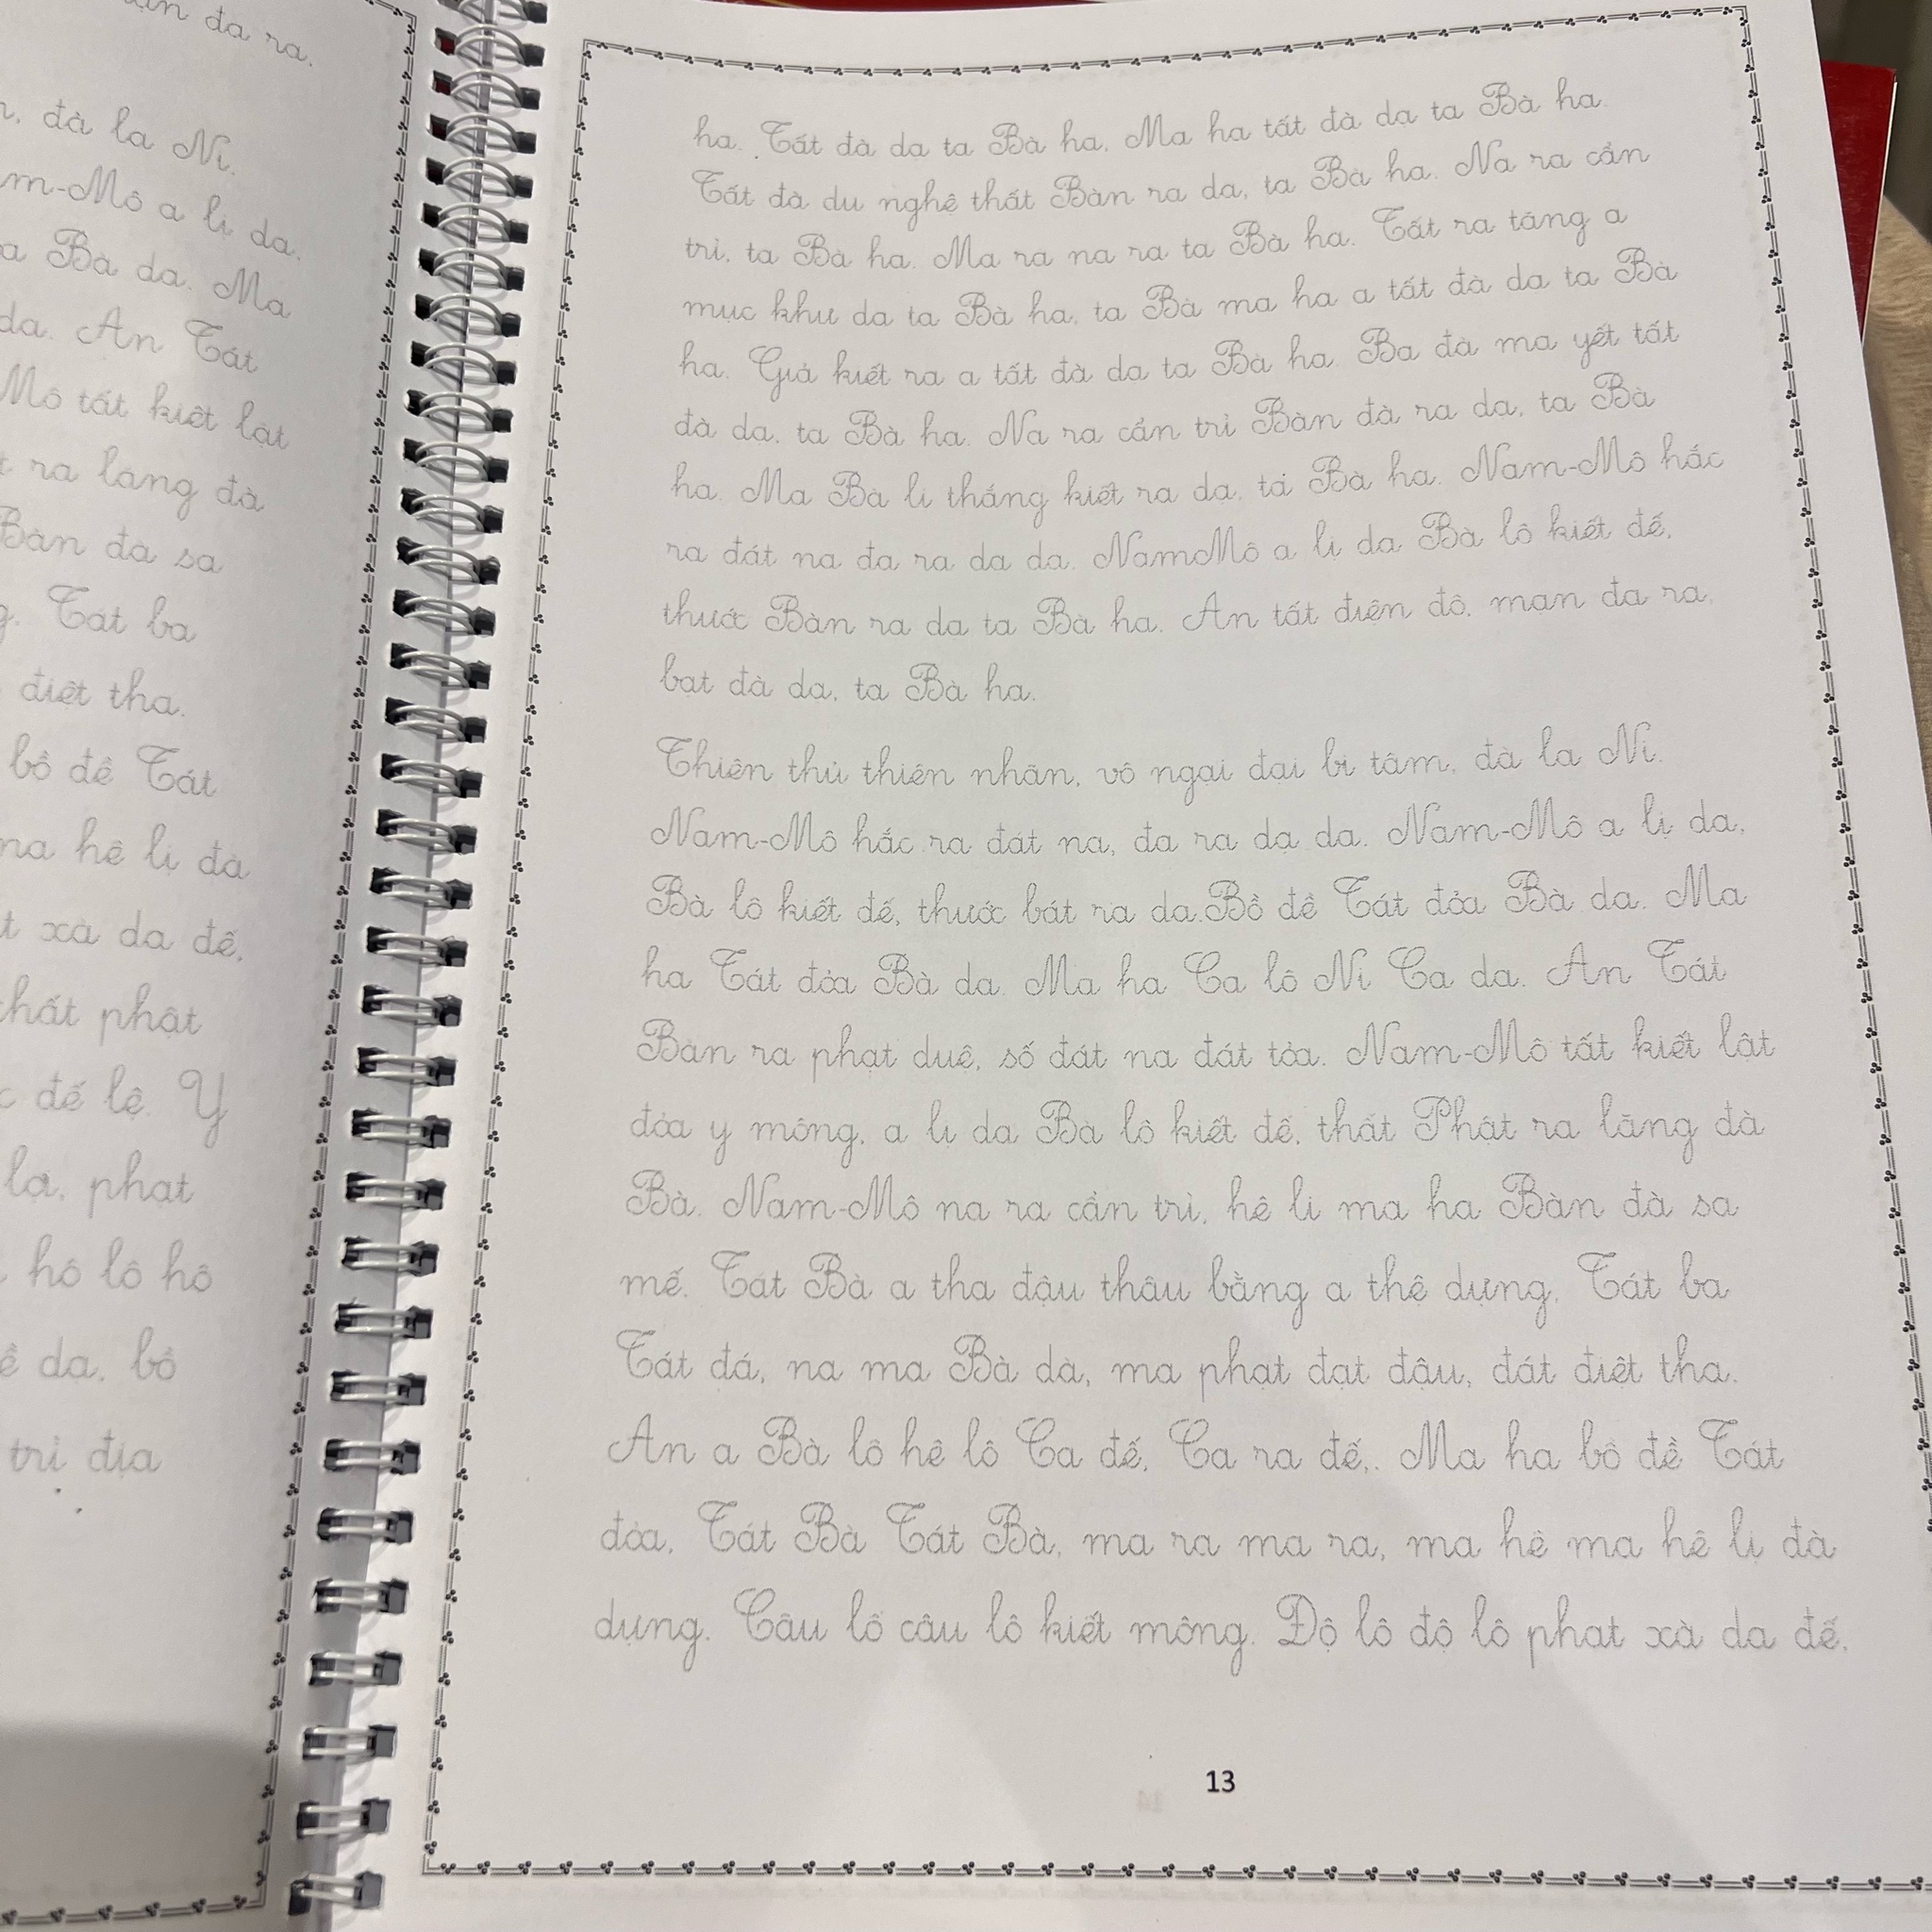 àn đa ra.
đà la Ni.
m-Mô a lị da.
a Bà da. Ma
da. An Tát
Mô tất kiết lật
ra lăng đà
Bàn đà sa
Tát ba
điệt tha.
bồ đề Tát
ma hê lị đà
xà da đế,
thất phật
đế lệ. Y
la, phạt
hô lô hô
da, bồ
trì địa
ha. Tất đà dạ ta Bà ha. Ma ha tất đà dạ ta Bà ha.
Tất đà du nghệ thất Bàn ra da, ta Bà ha. Na ra cẩn
trì, ta Bà ha. Ma ra na ra ta Bà ha. Tất ra tăng a
mục khư da ta Bà ha, ta Bà ma ha a tất đà da ta Bà
ha. Giả kiết ra a tất đà da ta Bà ha. Ba đà ma yết tất
đà da, ta Bà ha. Na ra cẩn trì Bàn đà ra da, ta Bà
ha. Ma Bà lị thắng kiết ra da, ta Bà ha. Nam-Mô hắc
ra đát na đa ra dạ da. NamMô a lị da Bà lô kiết đế,
thước Bàn ra da ta Bà ha. Án tất điện đô, man đa ra,
bạt đà da, ta Bà ha.
Thiên thủ thiên nhãn, vô ngại đại bi tâm, đà la Ni.
Nam-Mô hắc ra đát na, đa ra dạ da. Nam-Mô a lị da,
Bà lô kiết đế, thước bát ra da.Bồ đề Tát đỏa Bà da. Ma
ha Tát đỏa Bà da. Ma ha Ca lô Ni Ca da. Án Tát
Bàn ra phạt duệ, số đát na đát tỏa. Nam-Mô tất kiết lật
đỏa y mông, a lị da Bà lô kiết đế, thất Phật ra lăng đà
Bà. Nam-Mô na ra cẩn trì, hê lị ma ha Bàn đà sa
mế. Tát Bà a tha đậu thâu bằng a thệ dựng. Tát ba
Tát đá, na ma Bà dà, ma phạt đạt đậu, đát điệt tha.
Án a Bà lô hê lô Ca đế, Ca ra đế,. Ma ha bồ đề Tát
đỏa, Tát Bà Tát Bà, ma ra ma ra, ma hê ma hê lị đà
dựng. Câu lô câu lô kiết mông. Độ lô độ lô phạt xà da đế,
13